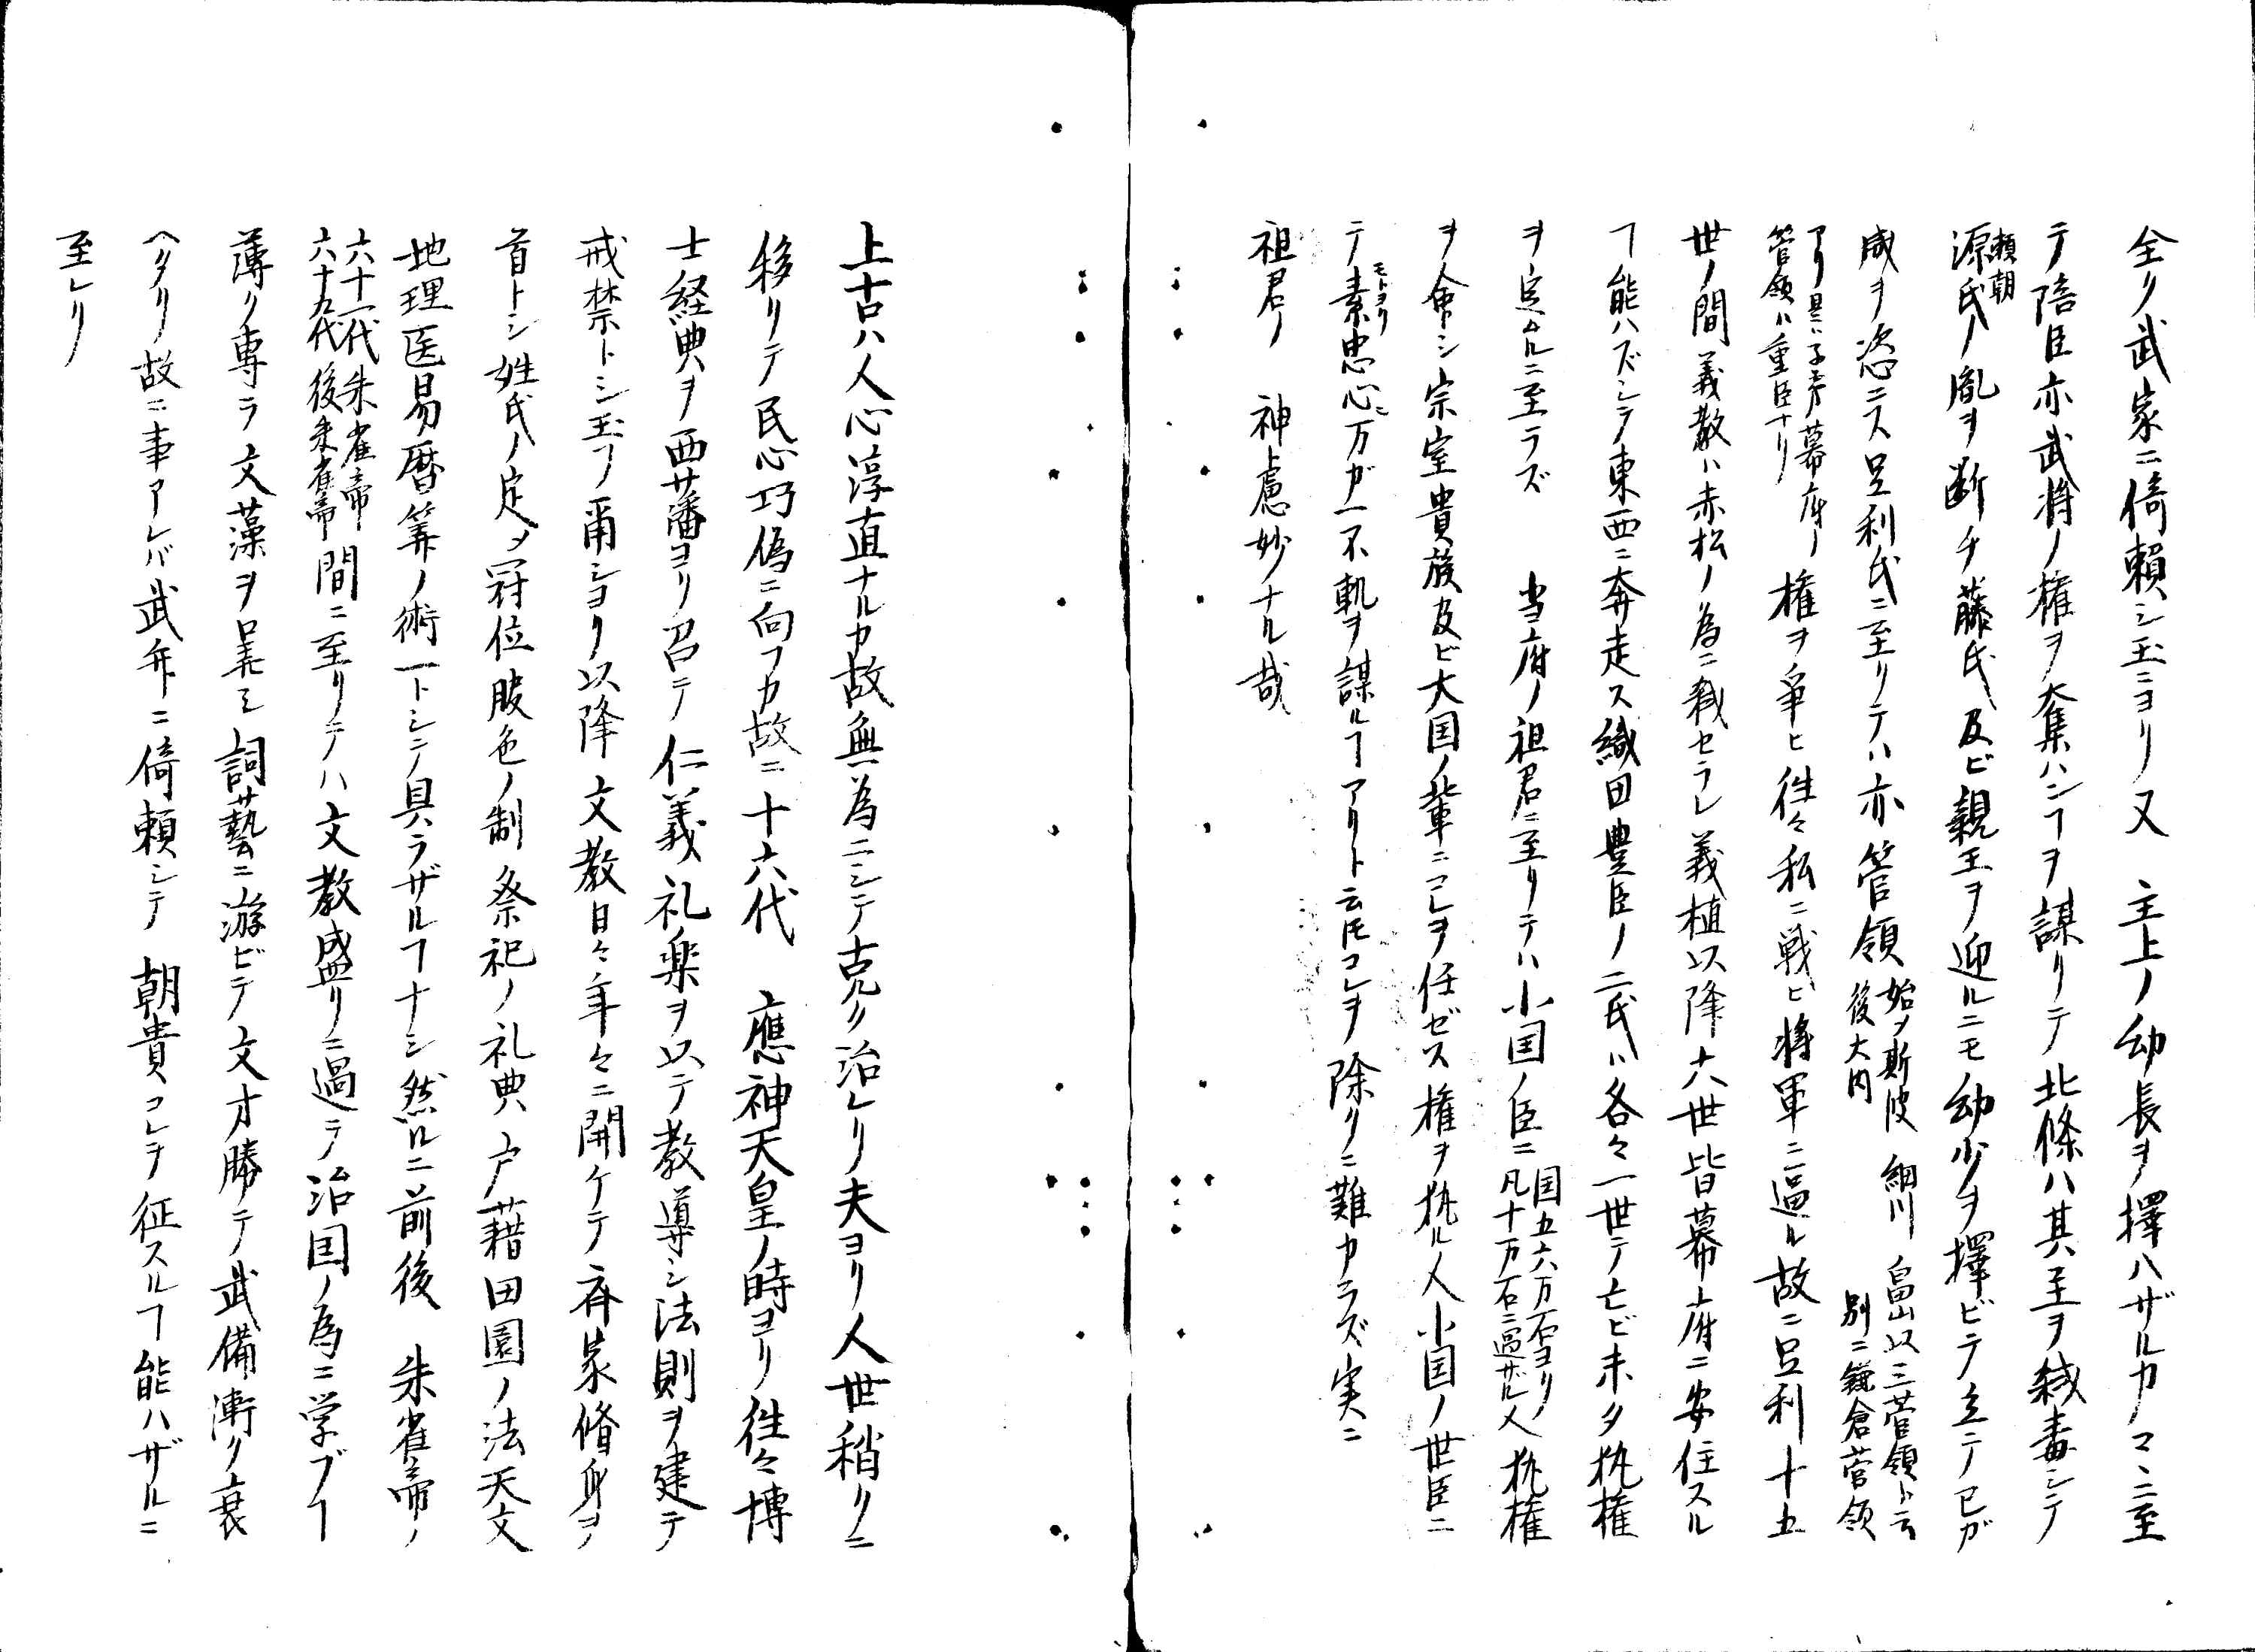 全ク武家ニ倚頼シ玉ニヨリ又 主上ノ幼長ヲ擇ハザルカマニ至
テ陪臣亦武将ノ権ヲ奪ハンヿヲ謀リテ北條ハ其主ヲ弑毒シテ
頼朝
源氏ノ胤ヲ断チ藤氏及ビ親王ヲ迎ルニモ幼少ヲ擇ビテ立テ己ガ
威ヲ恣ニス足利氏ニ至リテハ亦管領
始メ斯波 細川 畠山以三菅領ト云
後大内 別ニ鎌倉菅領
アリ是ハ子孝幕府ノ
管領ハ重臣ナリ
権ヲ爭ヒ徃々私ニ戦ヒ将軍ニ逼ル故ニ足利十五
世ノ間義教ハ赤松ノ為ニ弑セラレ義植以降六世皆幕府ニ安住スル
ヿ能ハズシテ東西ニ奔走ス織田豊臣ノ二氏ハ各々一世テ亡ビ未タ執権
ヲ定ムルニ至ラズ 当府ノ祖君ニ至リテハ小国ノ臣ニ
国五六万石ヨリ
凡十万石ニ過ザル人
执権
ヲ命シ宗室貴族及ビ大国ノ輩ニコレヲ任ゼス権ヲ执ル人小国ノ世臣ニ
テ素忠心ニ万ガ一不軌ヲ謀ルヿアリト云𪜈コレヲ除クニ難カラズ実ニ
モトヨリ
祖君ノ 神慮妙ナル哉
上古ハ人心淳直ナルカ故無為ニシテ克ク治レリ夫ヨリ人世稍クニ
移リテ民心巧偽ニ向フカ故ニ十六代 應神天皇ノ時ヨリ徃々博
士経典ヲ西藩ヨリ召テ仁義礼楽ヲ以テ教導シ法則ヲ建テ
戒禁トシ玉フ爾シヨリ以降文教日々年々ニ開ケテ斉家脩身ヲ
首トシ姓氏ノ定メ冠位服色ノ制祭祀ノ礼典戸藉田園ノ法天文
地理医易暦筭ノ術一トシテ具ラザルヿナシ然ルニ前後 朱雀帝ノ
六十一代朱雀帝
六十九代後朱雀帝
間ニ至リテハ文教盛リニ過テ治国ノ為ニ学ブヿ
薄ク専ラ文藻ヲ翫ミ詞藝ニ游ビテ文才勝テ武備漸ク衰
ヘタリ故ニ事アレバ武弁ニ倚頼シテ 朝貴コレヲ征スルヿ能ハザルニ
至レリ